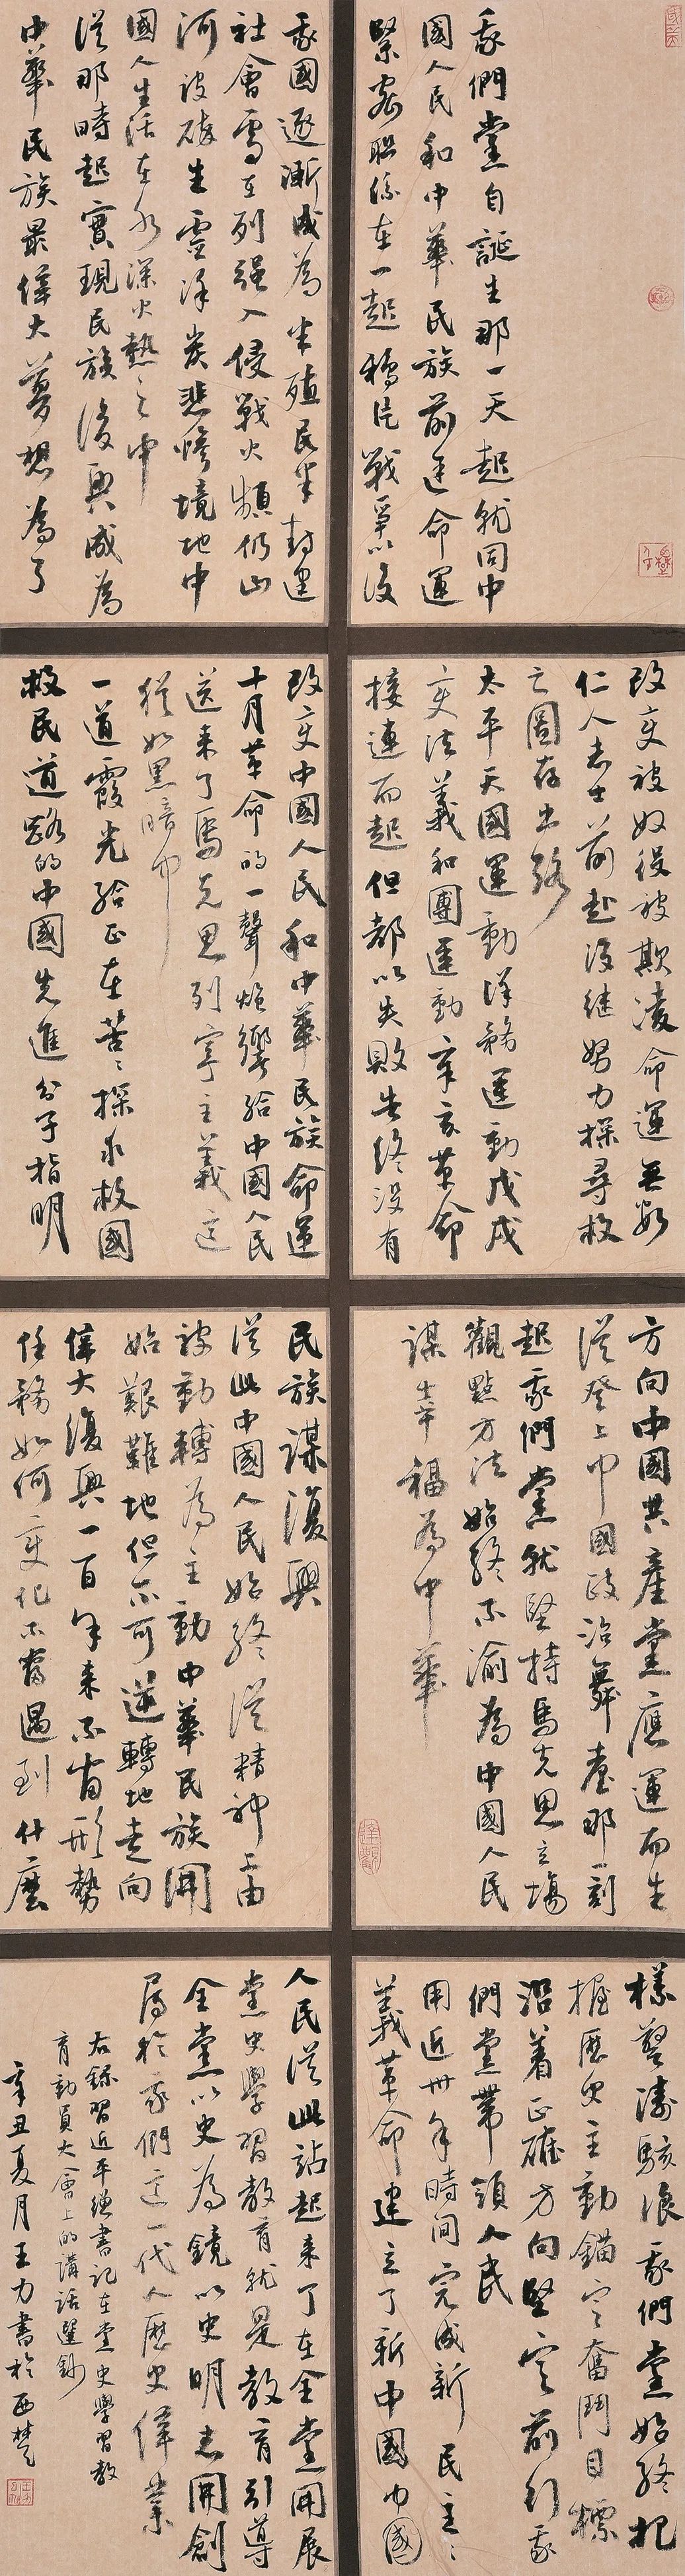 我們黨自誕生那一天起就同中
國人民和中華民族前途命運
緊密聯繫在一起鴉片戰爭以後
我國逐漸成為半殖民半封建
社會屢在列強入侵戰火頻仍山
河破碎生靈塗炭悲慘境地中
國人生活在水深火熱之中
從那時起實現民族復興成為
中華民族最偉大夢想為了
改變被奴役被欺凌命運無數
仁人志士前赴後继努力探尋救
亡圖存出路
太平天國運動洋務運動戊戌
變法義和團運動辛亥革命
接連而起但都以失敗告終沒有
改變中國人民和中華民族命運
十月革命的一聲炮響給中國人民
送來了馬克思列寧主義這
猶如黑暗中
一道霞光給正在苦〻探求救國
救民道路的中國先進分子指明
方向中國共產黨應運而生
從登上中國政治舞臺那一刻
起我們黨就堅持馬克思立場
觀點方法始終不渝為中國人民
謀幸福為中華
民族謀復興
從此中國人民始終從精神上由
被動轉為主動中華民族開
始艱難地但不可逆轉地走向
偉大復興一百年來不管形勢
任務如何變化不管遇到什麼
樣驚濤駭浪我們黨始終把
握歷史主動錨定奮鬥目標
沿着正確方向堅定前行我
們黨帶領人民
用近卅年時間完成新民主〻
義革命建立了新中國中國
人民從此站起來了在全黨開展
黨史學習教育就是教育引導
全黨以史為鏡以史明志開創
屬於我們這一代人歷史偉業
右錄習近平總書記在黨史學習教
育動員大會上的講話選鈔
辛丑夏月王力書於西楚
達觀